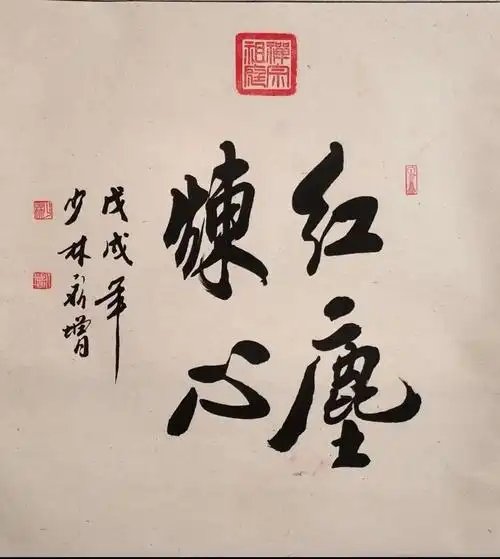 禪宗祖庭
红塵
煉心
戊戌年
少林增